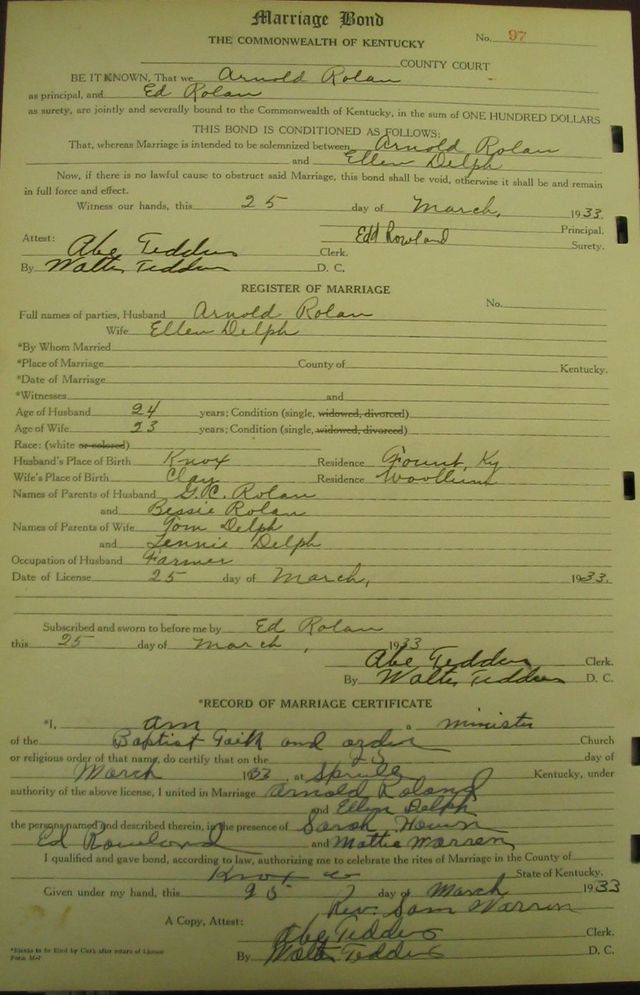 Marriage Bond
THE COMMONWEALTH OF KENTUCKY No. 97
COUNTY COURT
BE IT KNOWN, That we Arnold Rolan
as principal, and Ed Rolan
as surety, are jointly and severally bound to the Commonwealth of Kentucky, in the sum of ONE HUNDRED DOLLARS
THIS BOND IS CONDITIONED AS FOLLOWS:
That, whereas Marriage is intended to be solemnized between Arnold Rolan
and Ellen Delph
Now, if there is no lawful cause to obstruct said Marriage, this bond shall be void, otherwise it shall be and remain
in full force and effect.
Witness our hands, this 25 day of March, 1933.
Principal.
Attest: Edd Rowland Surety.
Abe Tedders Clerk.
By Walter Tedders D. C.
REGISTER OF MARRIAGE
Full names of parties, Husband Arnold Rolan No.
Wife Ellen Delph
*By Whom Married
*Place of Marriage County of Kentucky.
*Date of Marriage
*Witnesses and
Age of Husband 24 years; Condition (single, widowed, divorced)
Age of Wife 23 years; Condition (single, widowed, divorced)
Race: (white or colored)
Husband's Place of Birth Knox Residence Fount, Ky
Wife's Place of Birth Clay Residence Woollum
Names of Parents of Husband G.C. Rolan
and Bessie Rolan
Names of Parents of Wife Tom Delph
and Jennie Delph
Occupation of Husband Farmer
Date of License 25 day of March, 1933.
Subscribed and sworn to before me by Ed Rolan
this 25 day of March, 1933
Abe Tedders Clerk.
By Walter Tedders D. C.
*RECORD OF MARRIAGE CERTIFICATE
*I, am a minister
of the Baptist Faith and order Church
or religious order of that name, do certify that on the 25 day of
March 1933, at Sprule Kentucky, under
authority of the above license, I united in Marriage Arnold Roland
and Ellen Delph
the persons named and described therein, in the presence of Sarah
Ed Rowland and Mattie Warren
I qualified and gave bond, according to law, authorizing me to celebrate the rites of Marriage in the County of
Knox co State of Kentucky.
Given under my hand, this 25 day of March 1933
Rev. Sam Warren
A Copy, Attest: Abe Tedders Clerk.
By Walter Tedders D. C.
*Blanks to be filled by Clerk after return of License
Form M-7